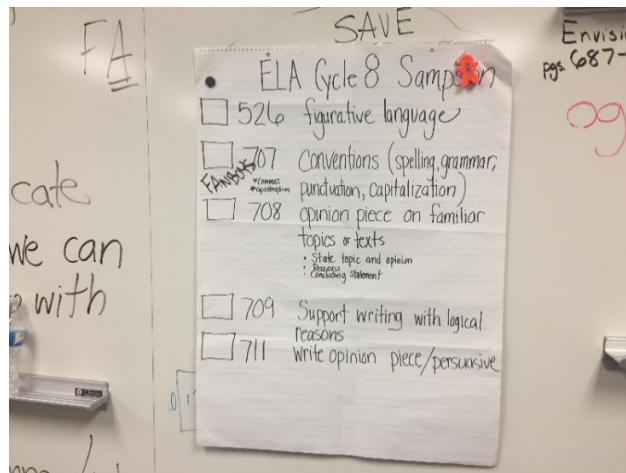 SAVE
FA
Envisi
pgs. 687-
og
cate
we can
with
ELA Cycle 8 Sampson
526 figurative language
707 Conventions (spelling, grammar,
FANBOYS
*commas
*apostrophes
punctuation, capitalization)
708 opinion piece on familiar
topics or texts
• State topic and opinion
• Reasons
• Concluding statement
709 Support writing with logical
reasons
711 Write opinion piece/persuasive